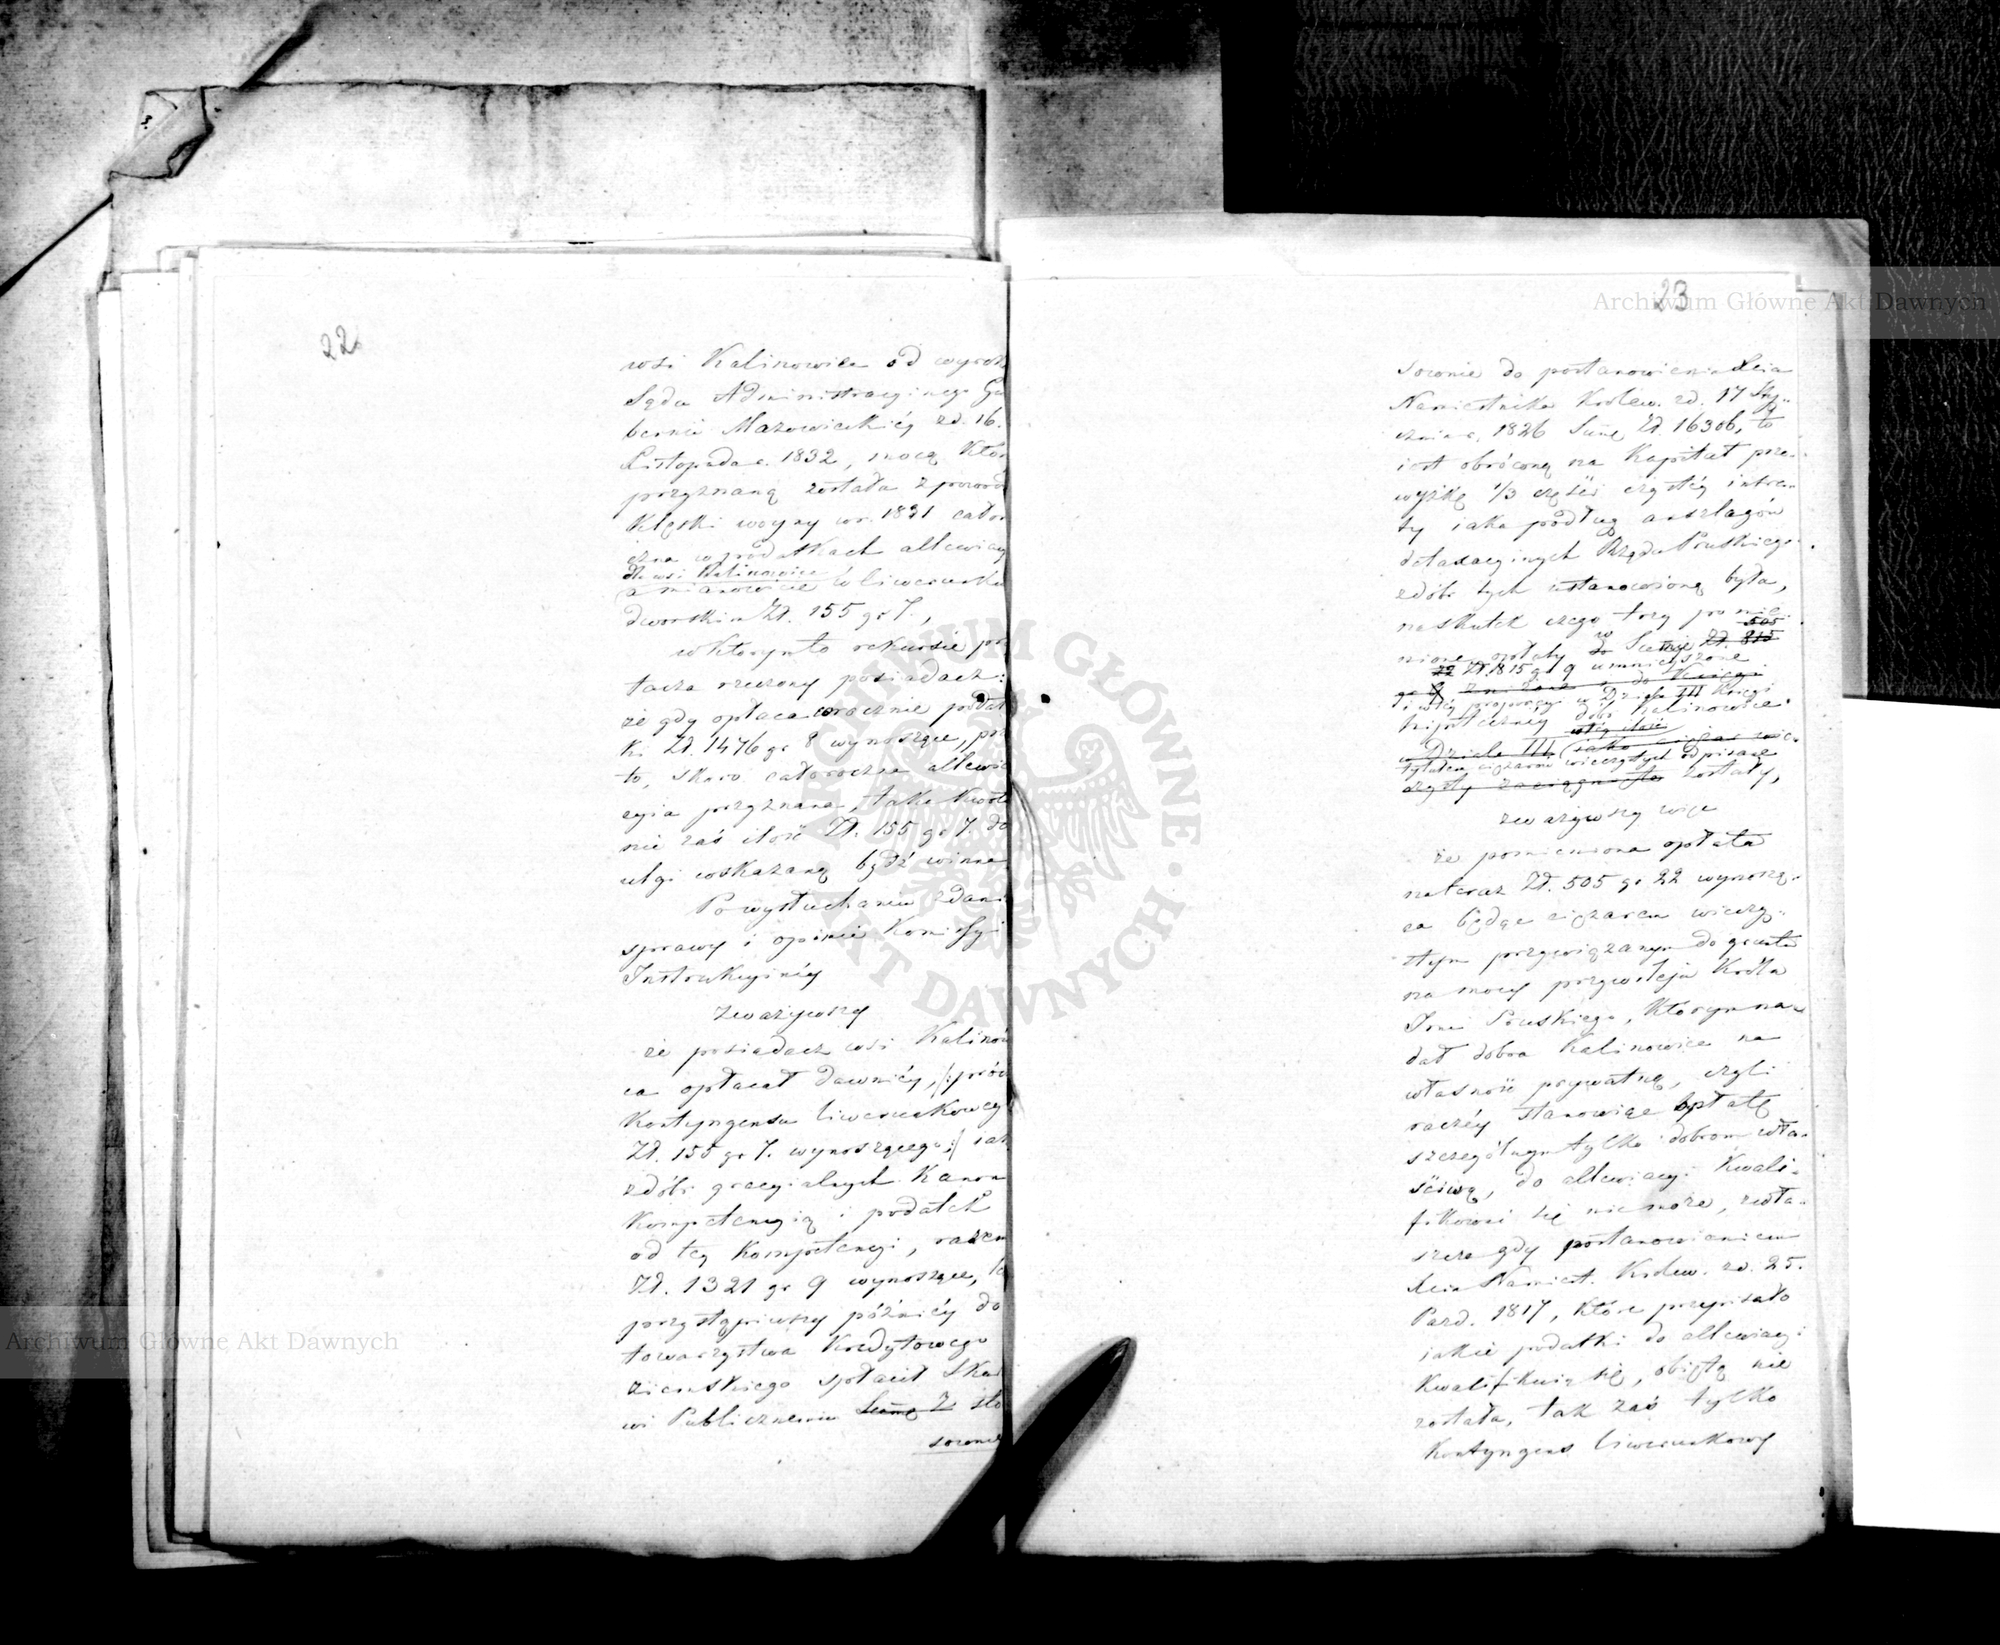 22
wsi Kalinowice od wyroku
Sądu Administracyinego Gu
bernii Mazowieckiéy zd. 16.
Listopada r. 1832, mocą któr
przyznaną została z powodu
klęski woyny w r. 1831 całor
czna w podatkach allewiacy
dla wsi Kalinowice
a mianowicie w liwerunku
dworskim Zł. 155 gr 7.,
w którymto rekursie po
tacza rzeczony posiadacz:
że gdy opłaca corocznie podat
ki Zł. 1476 gr 8 wynoszące, prze
to, skoro całoroczna allewia
cyia przyznana, taka kwota
nie zaś ilość Zł. 155 gr 7. do
ulgi wskazaną bydź winna
Po wysłuchaniu zdania
sprawy i opinii Komissyi
Instrukcyinéy
zważywszy
że posiadacz wsi Kalinow
ca opłacał dawniéy, /:prócz
Kontyngensu liwerunkowego
Zł. 155 gr 7. wynoszącego:/ iak
z dóbr gracyialnych Kanon
kompetencyią i podatek
od téy kompetencyi, razem
Zł. 1321 gr 9 wynoszące,
przystąpiwszy późniéy do
towarzystwa Kredytowego
ziemskiego spłacił Skar
wi Publicznemu Summę Z sto
sownie
23
sownie do postanowienia Xcia
Namiestnika Królew. zd. 17 Sty-
cznia r. 1826 Summę Zł. 16306, to
iest obróconą na Kapitał prze-
wyżkę 1/3 części czystéy intra-
ty iaka podług anszlagów
detaxacyinych Rządu Pruskiego
z dóbr tych ustanowioną była,
na skutek czego trzy pomie
505
nione opłaty w do Summie Zł. 815
22 Zł. 815 gr 9 umnieyszone
gr 9 zniżone i do Księgi
i w téy proporcyi w Dziale III Księgi
hipotecznéy dóbr Kalinowice
w téy ilości
w Dziale III iako ciężar wie-
tytułem ciężarów wieczystych odpisane
czysty zaciągnięte zostały,
zważywszy więc
że pomieniona opłata
na teraz Zł. 505 gr 22 wynoszą-
ca będąc ciężarem wieczy-
stym przywiązanym do gruntu
na mocy przywileju Króla
Jmci Pruskiego, którym na-
dał dobra Kalinowice na
własność prywatną, czyli
raczéy stanowiąc opłatę
szczególnym tylko dobrom wła-
ściwą, do allewiacyi kwali-
fikować się nie może, zwła-
szcza gdy postanowieniem
Xcia Namiest. Królew. zd. 25.
Pazd. 1817, które przepisało
iakie podatki do allewiacyi
kwalifikuią się, obiętą nie
została, tak zaś tylko
Kontyngens liwerunkowy
Archiwum Główne Akt Dawnych
Archiwum Główne Akt Dawnych
ARCHIWUM GŁÓWNE AKT DAWNYCH